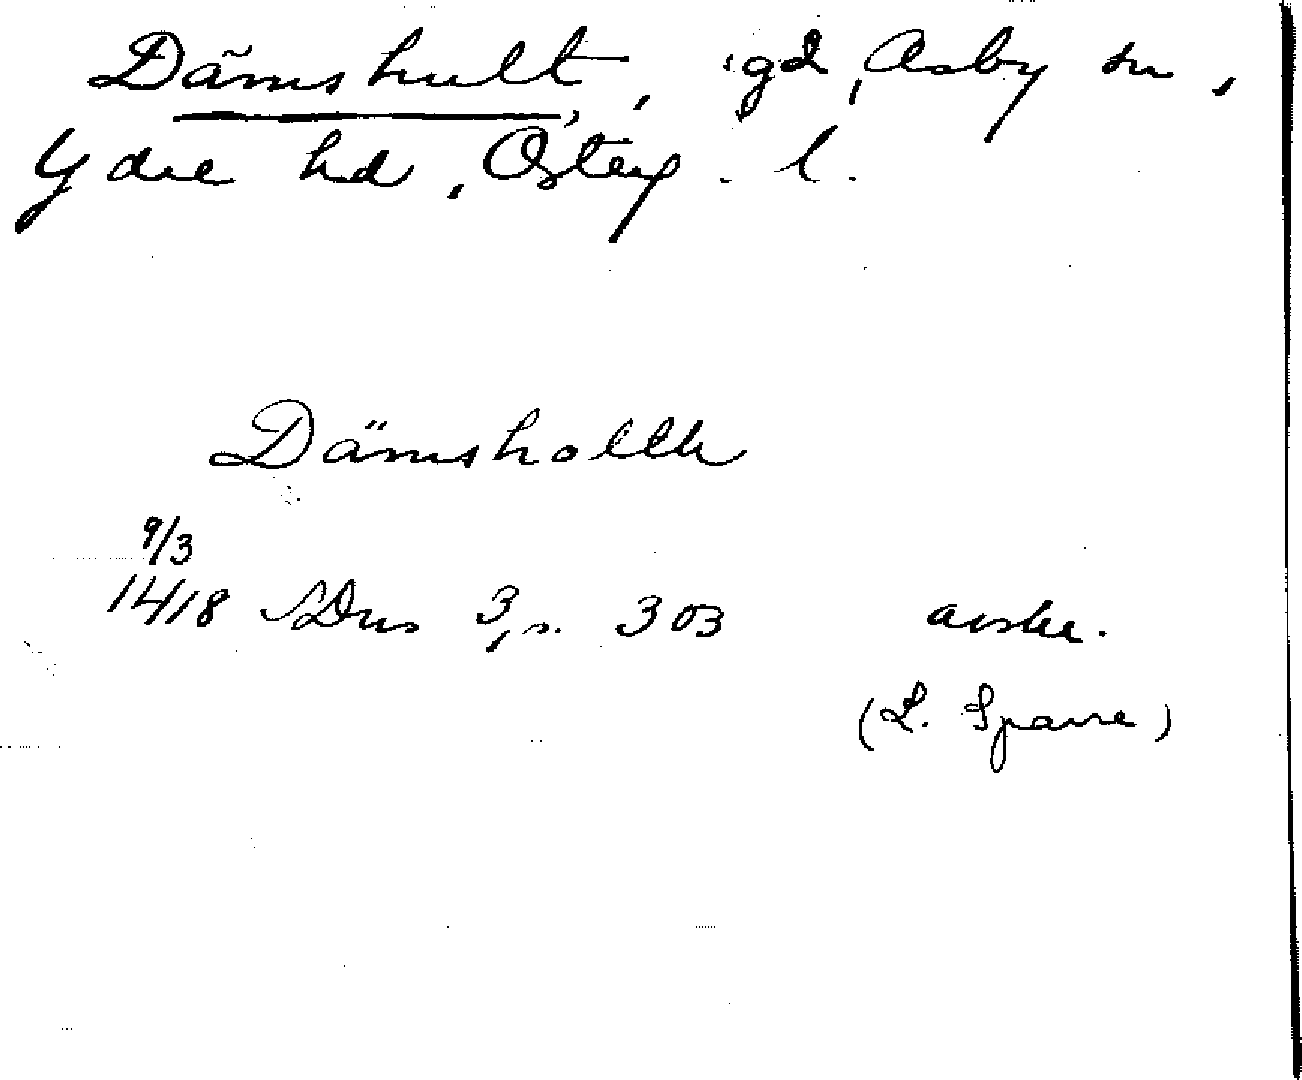 Dämshult, gd, Asby sn,
Ydre hd, Österg. l.
Dämshollth
9/3
1418 SDns 3, s. 303 avskr.
(L. Sparre)